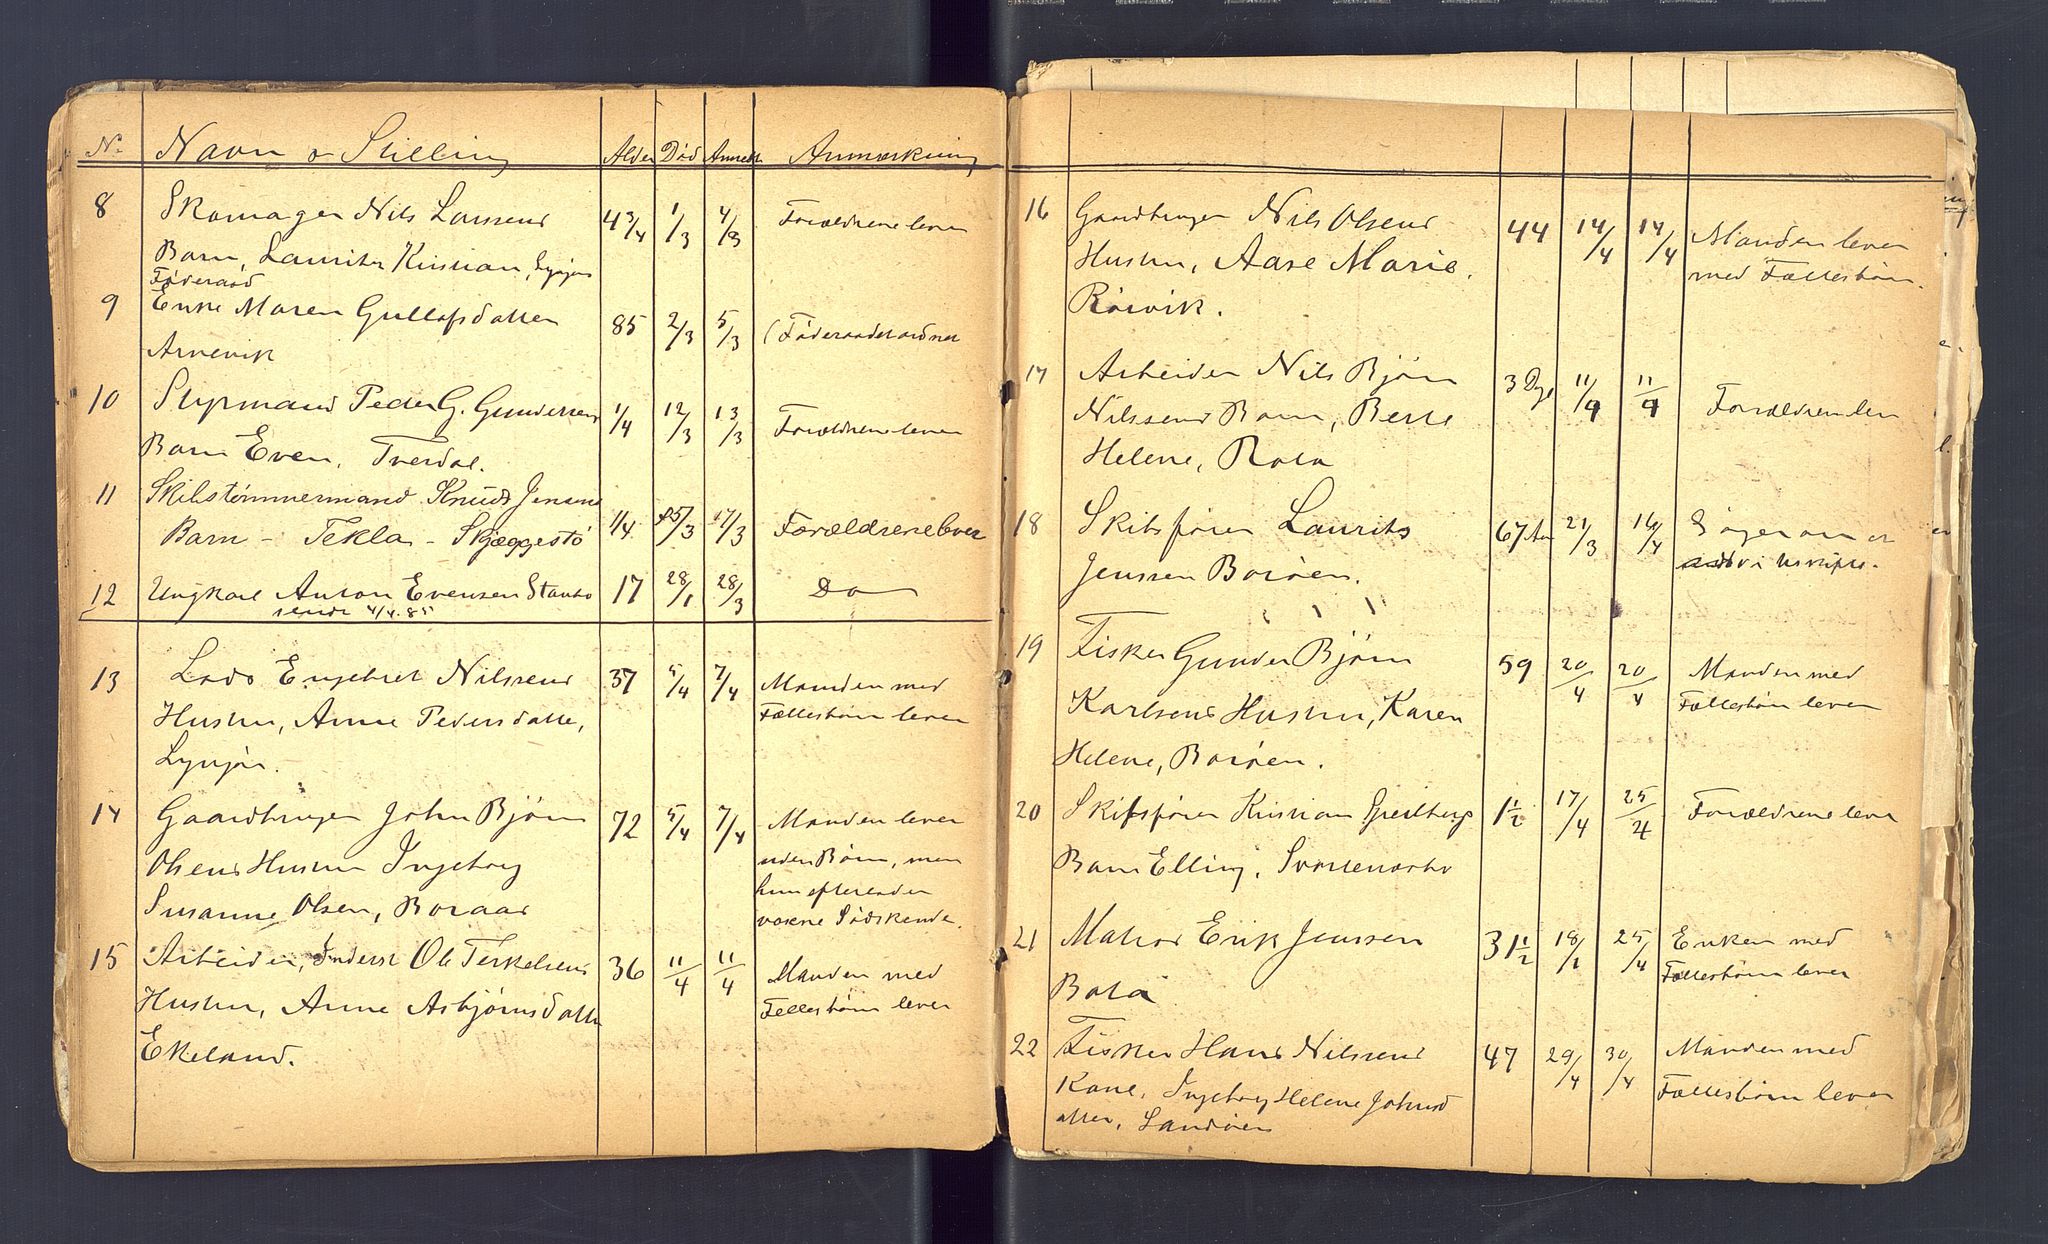 No. Navn o Stilling Alder Død Anmeldt Anmærkning
8 Skomager Nils Larsens 4 3/4 1/3 4/3 Forældrene lever
Barn, Laurits Kristian, Lyngør
Føderaad
9 Enke Maren Gullofsdatter 85 2/3 5/3 (Føderaadet ordner
Arnevik
10 Styrmand Peder G. Gundersens 1/4 12/3 13/3 Forældrene lever
Barn Even, Tverdal.
11 Skibstømmermand Knud Jensens
Barn - Tekla - Skjæggestø 1/4 15/3 17/3 Forældrene lever
12 Ungkarl Anton Evensen 17 28/1 28/3 Do
sendt 4/4.85
13 Lods Engebret Nilssens 37 5/4 7/4 Manden med
Hustru, Anne Pedersdatter, Fællesbørn lever
Lyngør.
14 Gaardbruger John Bjørn 72 5/4 7/4 Manden lever
Olsens Hustru Ingeborg uden Børn, men
hun efterlader
Susanne Olsen, Boraas voxne Sødskende.
15 Arbeider, Inderst Ole Terkelsens 36 11/4 11/4 Manden med
Hustru, Anne Asbjørnsdatter Fellesbørn lever
Ekeland.
16 Gaardbruger Nils Olsens 44 14/4 14/4 Manden lever
Hustru, Aase Marie. med Fællesbørn.
Rørvik.
17 Arbeider Nils Bjørn 3 Dge 11/4 11/4 Forældrene lev
Nilssens Barn, Berte
Helene, Bota
18 Skibsfører Laurits 67 Aar 21/3 16/4 Søger om at
Jenssen Borøen. sidde i uskiftet.
19 Fisker Gunder Bjørn 59 20/4 20/4 Manden med
Karlsens Hustru, Karen Fællesbørn lever
Helene, Borøen.
20 Skibsfører Kristian 1 1/2 17/4 25/4 Forældrene lever
Barn Elling,
21 Matros Erik Jenssen 31 1/2 18/1 25/4 Enken med
Bota Fællesbørn lever
22 Fisker Hans Nilssens 47 29/4 30/4 Manden med
Kone, Ingeborg Helene Johnsd Fællesbørn lever
atter, Sandøen